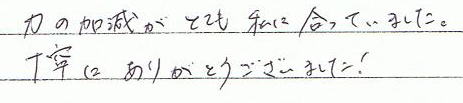 力の加減がとても私に合っていました。
丁寧にありがとうございました!